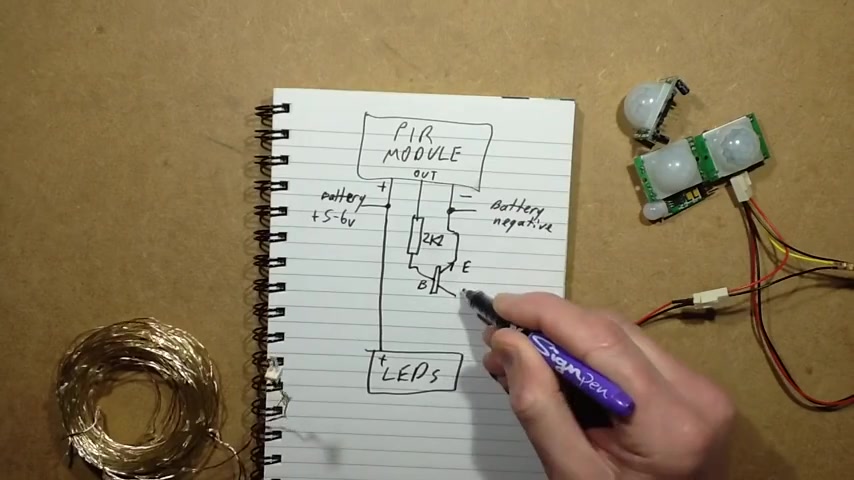 PIR
MODULE
OUT
+ −
Battery
+5-6v
Battery
negative
2K2
E
B
+
LEDs
Sign pen